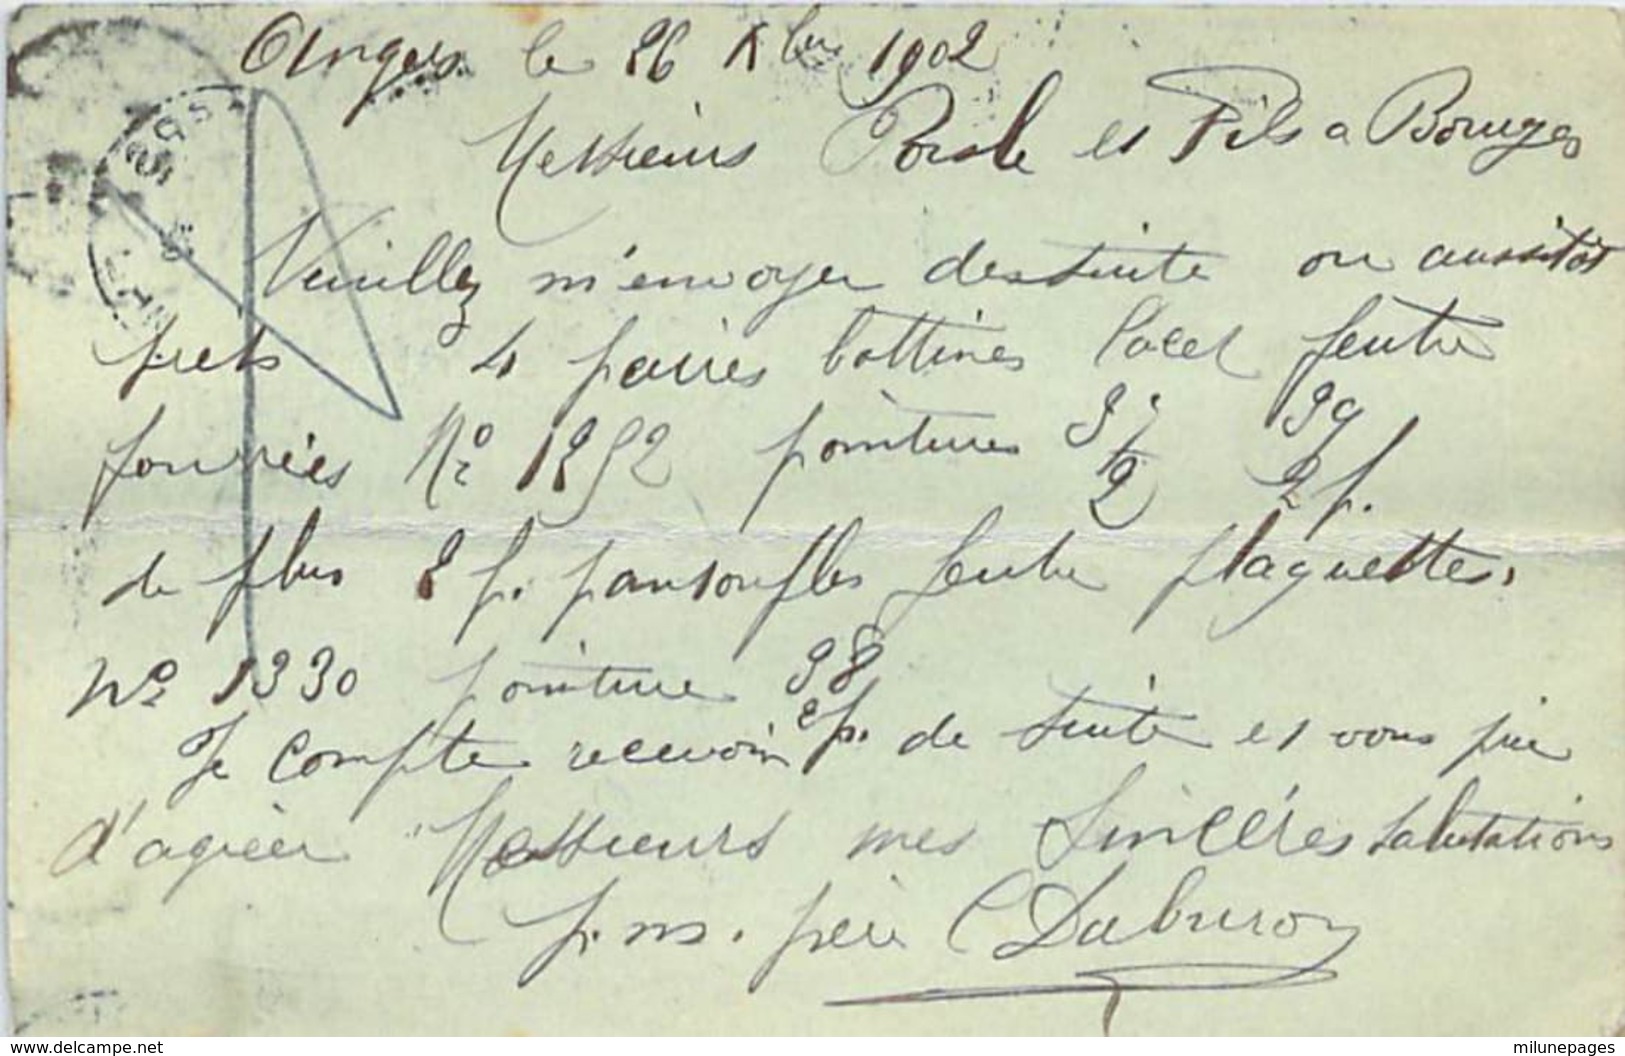 Angers le 26 Xbre 1902
Messieurs et Fils a Bourges
Veuillez m'envoyer desuite ou aussitôt
prets 4 paires bottines lacet feutre
fourrées No 1252 pointures 37 39
2 2 p.
de plus 2 p. pantoufles feutre plaquettes.
No 1330 pointure 38
2 p.
Je compte recevoir de suite et vous prie
d'agréer Messieurs mes sincéres salutations
p. m. père C Daburon
www.delcampe.net
milunepages